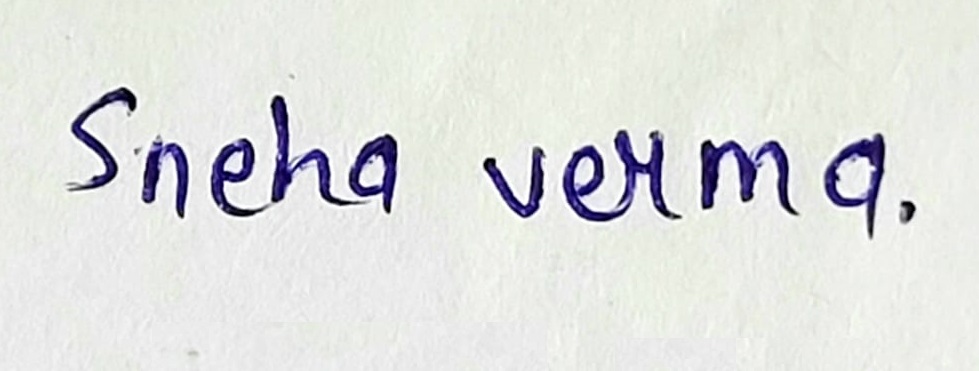 Sneha verma.